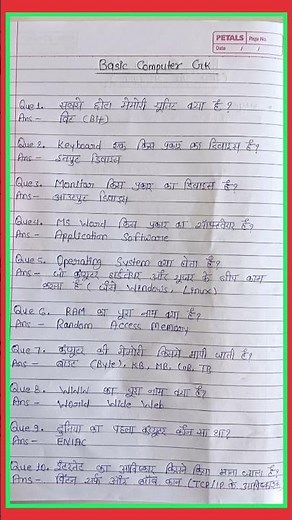 PETALS Page No.
Date / /
Basic Computer GK
Que 1. सबसे छोटा मेमोरी यूनिट क्या है?
Ans - बिट (Bit)
Que 2. Keyboard एक किस प्रकार का डिवाइस है?
Ans - इनपुट डिवाइस
Que 3. Monitor किस प्रकार का डिवाइस है?
Ans - आउटपुट डिवाइस
Que 4. MS Word किस प्रकार का सॉफ्टवेयर है?
Ans - Application Software
Que 5. Operating System क्या होता है?
Ans - जो कंप्यूटर हार्डवेयर और यूजर के बीच काम
करता है (जैसे Windows, Linux)
Que 6. RAM का पूरा नाम क्या है?
Ans - Random Access Memory
Que 7. कंप्यूटर की मेमोरी किसमें मापी जाती है?
Ans - बाइट (Byte), KB, MB, GB, TB
Que 8. WWW का पूरा नाम क्या है?
Ans - World Wide Web
Que 9. दुनिया का पहला कंप्यूटर कौन सा था?
Ans - ENIAC
Que 10. इंटरनेट का आविष्कार किसने किया माना जाता है?
Ans - विंटन सर्फ और बॉब कान (TCP/IP के